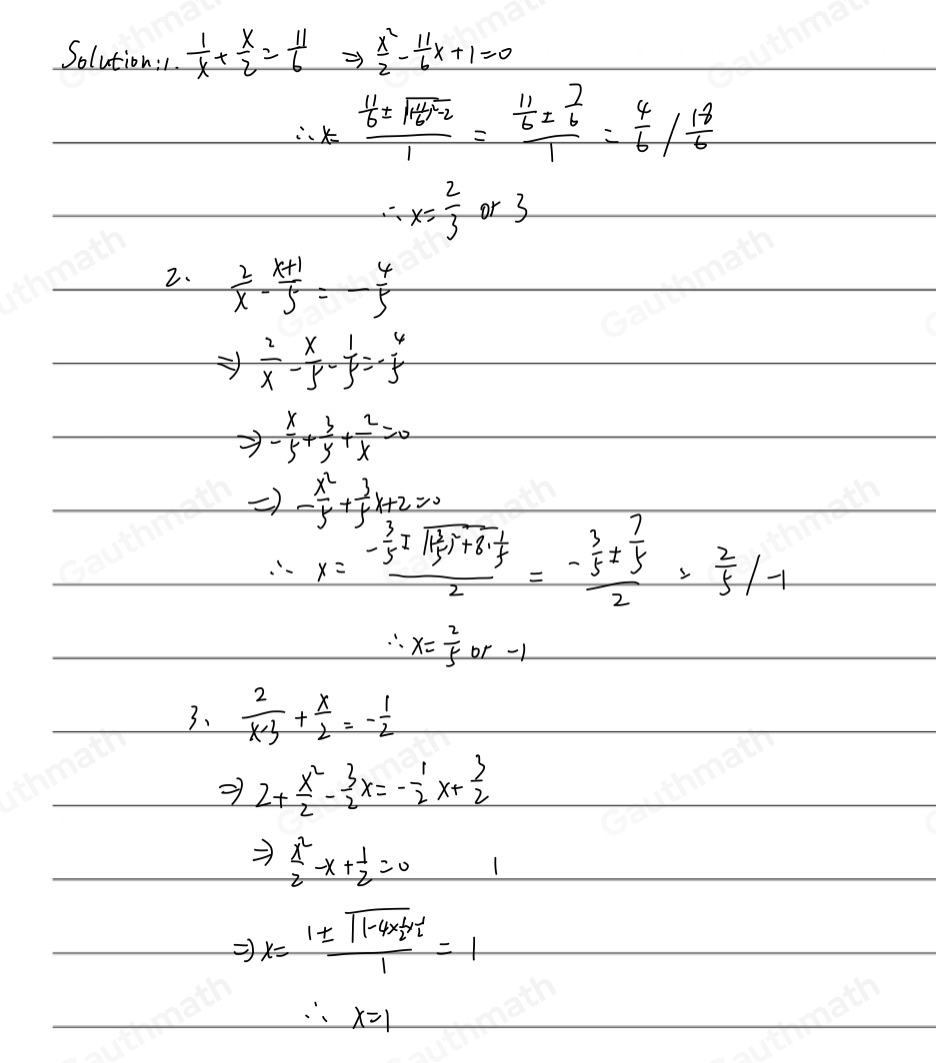 Solution: 1. 1/x + x/2 = 11/6 ⇒ x²/2 - 11/6 x + 1 = 0
∴ x = (11/6 ± √((-11/6)² - 2))/1 = (11/6 ± 7/6)/1 = 4/6 / 18/6
∴ x = 2/3 or 3
2. 2/x - (x+1)/5 = -4/5
⇒ 2/x - x/5 - 1/5 = -4/5
⇒ -x/5 + 3/5 + 2/x = 0
⇒ -x²/5 + 3/5 x + 2 = 0
∴ x = (-3/5 ± √((3/5)² + 8·1/5))/2 = (-3/5 ± 7/5)/2 = 2/5 / -1
∴ x = 2/5 or -1
3. 2/(x-3) + x/2 = -1/2
⇒ 2 + x²/2 - 3/2 x = -1/2 x + 3/2
⇒ x²/2 - x + 1/2 = 0 1
⇒ x = (1 ± √(1 - 4×1/2×1/2))/1 = 1
∴ x = 1